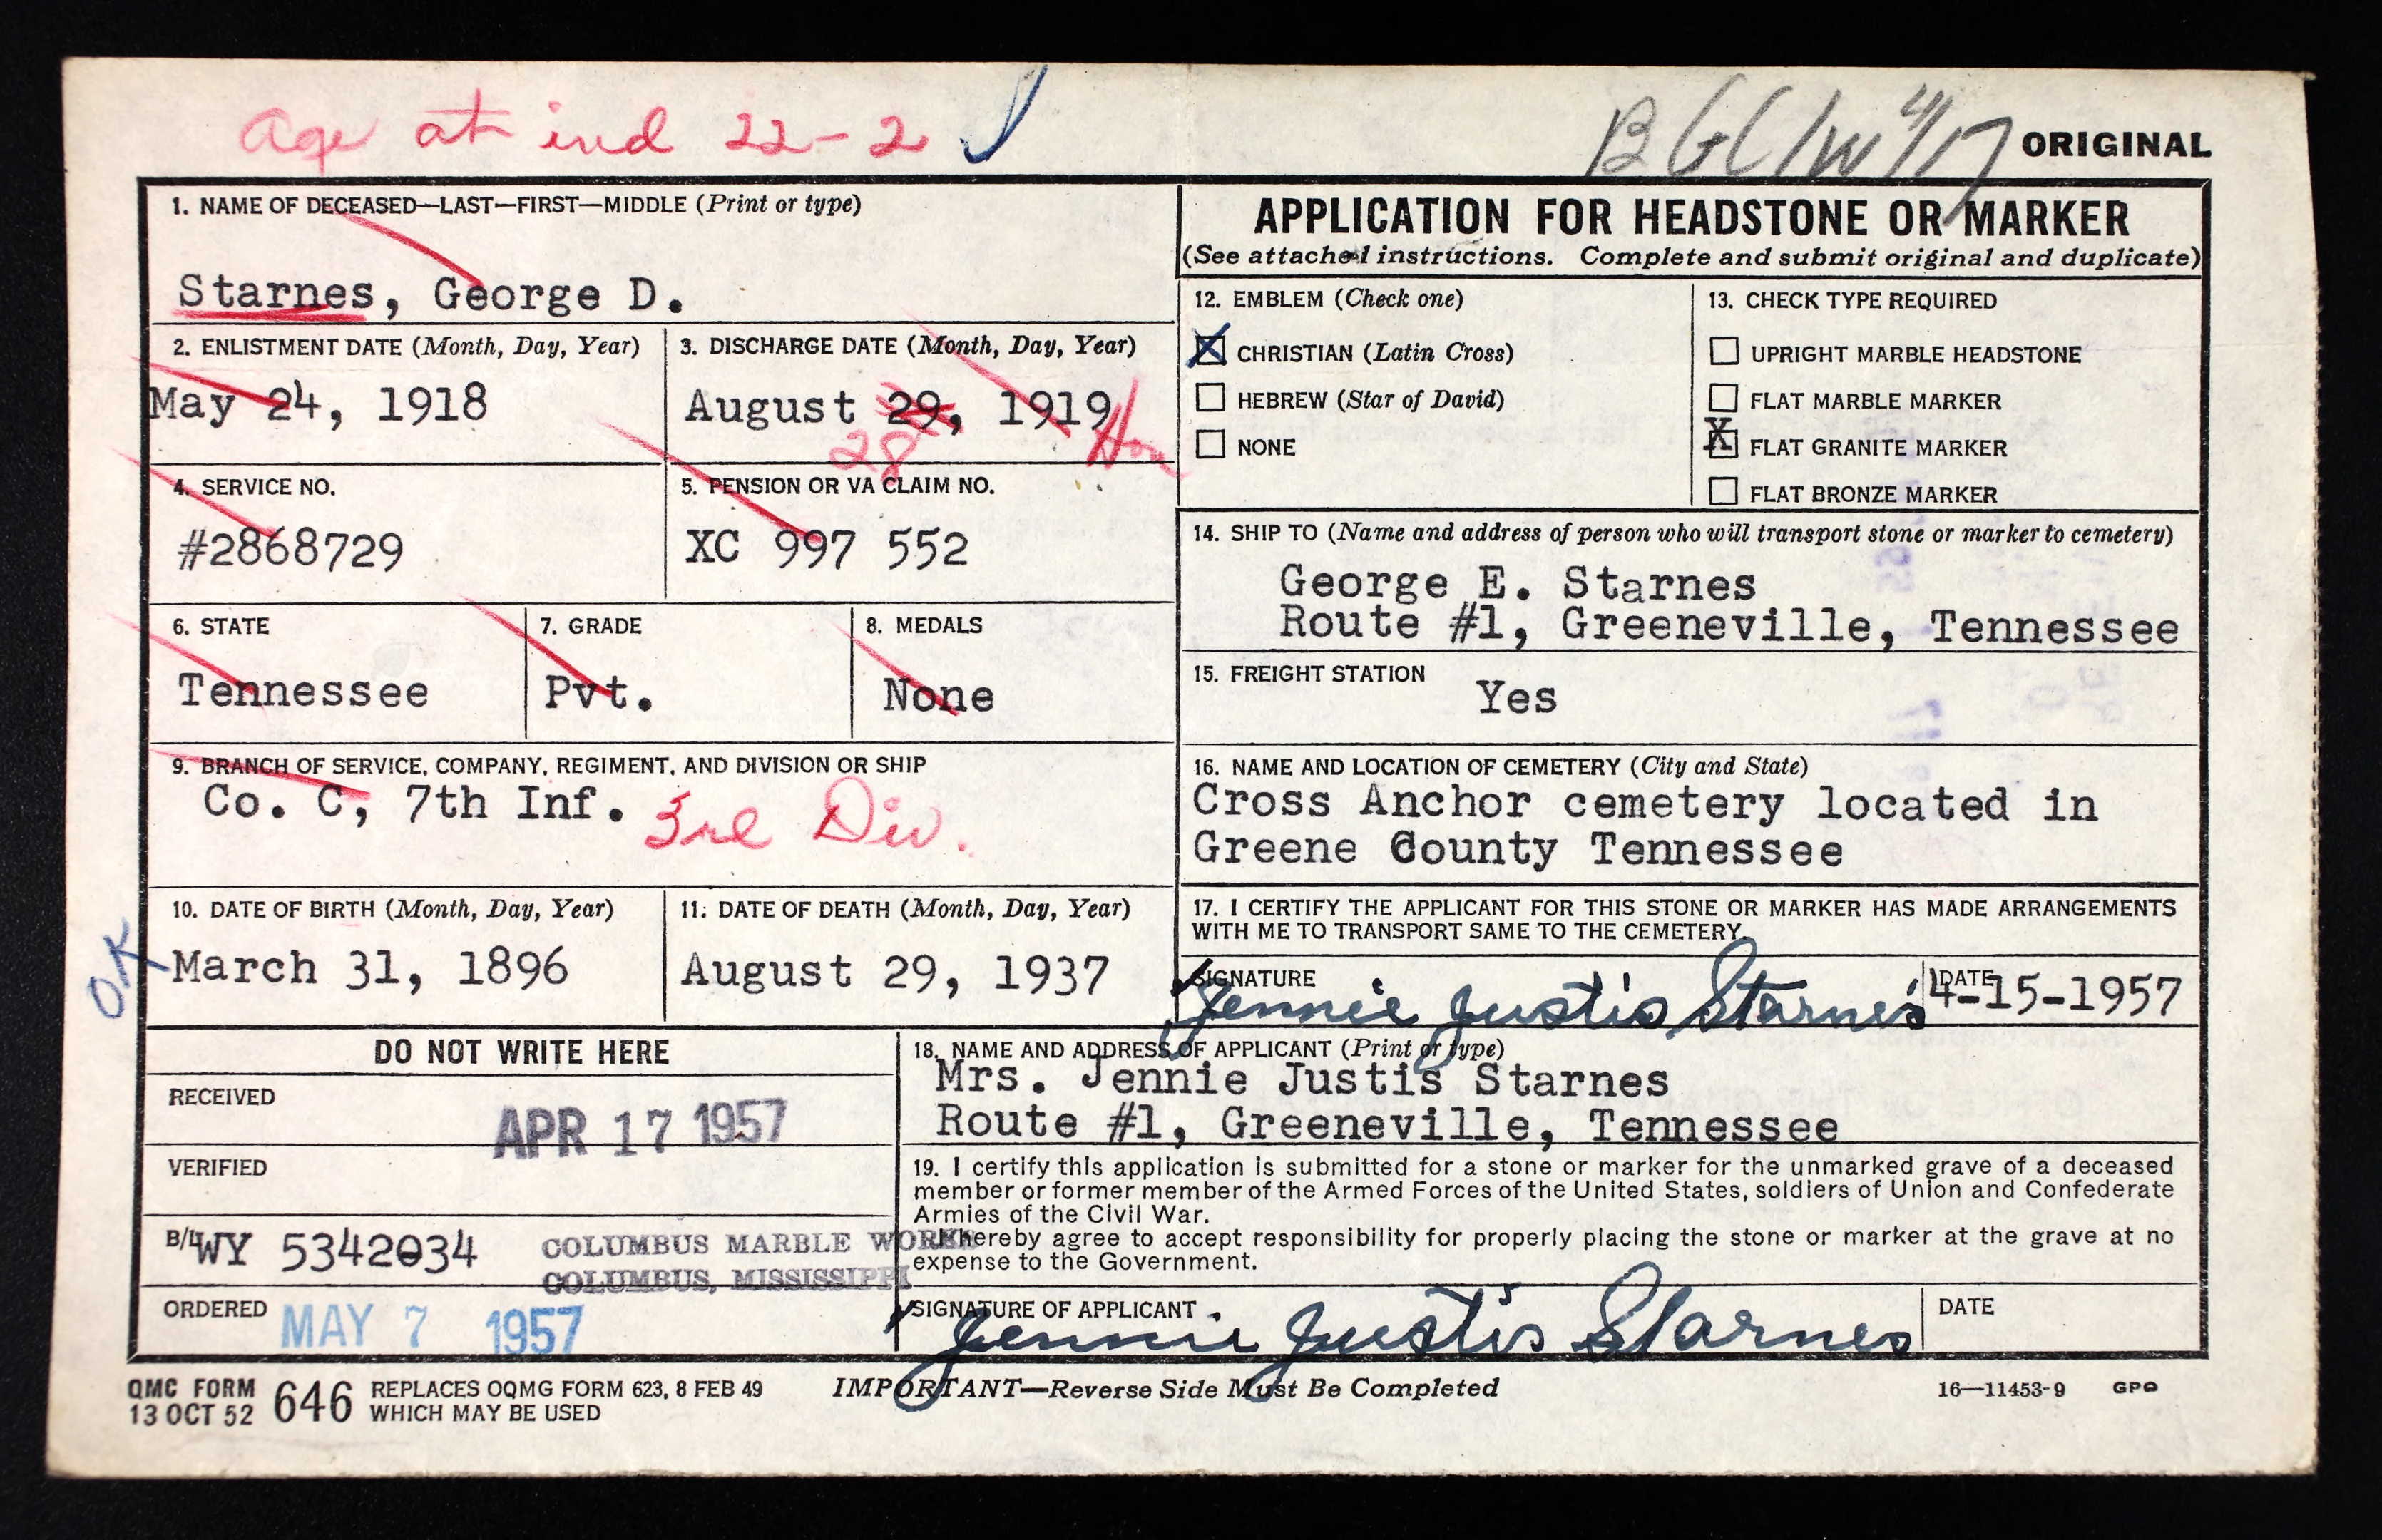 Age at ind 22-2
ORIGINAL
1. NAME OF DECEASED—LAST—FIRST—MIDDLE (Print or type)
Starnes, George D.
2. ENLISTMENT DATE (Month, Day, Year)
May 24, 1918
3. DISCHARGE DATE (Month, Day, Year)
August 29, 1919
28 Hon
4. SERVICE NO.
#2868729
5. PENSION OR VA CLAIM NO.
XC 997 552
6. STATE
Tennessee
7. GRADE
Pvt.
8. MEDALS
None
9. BRANCH OF SERVICE, COMPANY, REGIMENT, AND DIVISION OR SHIP
Co. C, 7th Inf. 3rd Div.
10. DATE OF BIRTH (Month, Day, Year)
OK
March 31, 1896
11. DATE OF DEATH (Month, Day, Year)
August 29, 1937
DO NOT WRITE HERE
RECEIVED
APR 17 1957
VERIFIED
B/L WY 5342034
COLUMBUS MARBLE WORKS
COLUMBUS, MISSISSIPPI
ORDERED
MAY 7 1957
APPLICATION FOR HEADSTONE OR MARKER
(See attached instructions. Complete and submit original and duplicate)
12. EMBLEM (Check one)
X CHRISTIAN (Latin Cross)
HEBREW (Star of David)
NONE
13. CHECK TYPE REQUIRED
UPRIGHT MARBLE HEADSTONE
FLAT MARBLE MARKER
X FLAT GRANITE MARKER
FLAT BRONZE MARKER
14. SHIP TO (Name and address of person who will transport stone or marker to cemetery)
George E. Starnes
Route #1, Greeneville, Tennessee
15. FREIGHT STATION
Yes
16. NAME AND LOCATION OF CEMETERY (City and State)
Cross Anchor cemetery located in
Greene County Tennessee
17. I CERTIFY THE APPLICANT FOR THIS STONE OR MARKER HAS MADE ARRANGEMENTS
WITH ME TO TRANSPORT SAME TO THE CEMETERY.
SIGNATURE
Jennie Justis Starnes
DATE
4-15-1957
18. NAME AND ADDRESS OF APPLICANT (Print or type)
Mrs. Jennie Justis Starnes
Route #1, Greeneville, Tennessee
19. I certify this application is submitted for a stone or marker for the unmarked grave of a deceased
member or former member of the Armed Forces of the United States, soldiers of Union and Confederate
Armies of the Civil War.
I hereby agree to accept responsibility for properly placing the stone or marker at the grave at no
expense to the Government.
SIGNATURE OF APPLICANT
Jennie Justis Starnes
DATE
QMC FORM
13 OCT 52
646
REPLACES OQMG FORM 623, 8 FEB 49
WHICH MAY BE USED
IMPORTANT—Reverse Side Must Be Completed
16—11453-9 GPO